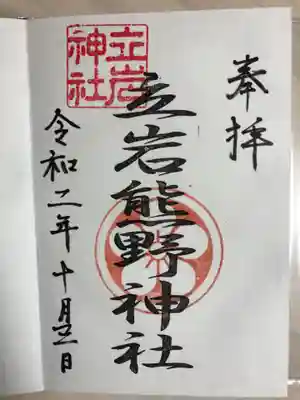 奉拝
立岩熊野神社
立岩
神社
令和二年十月二日